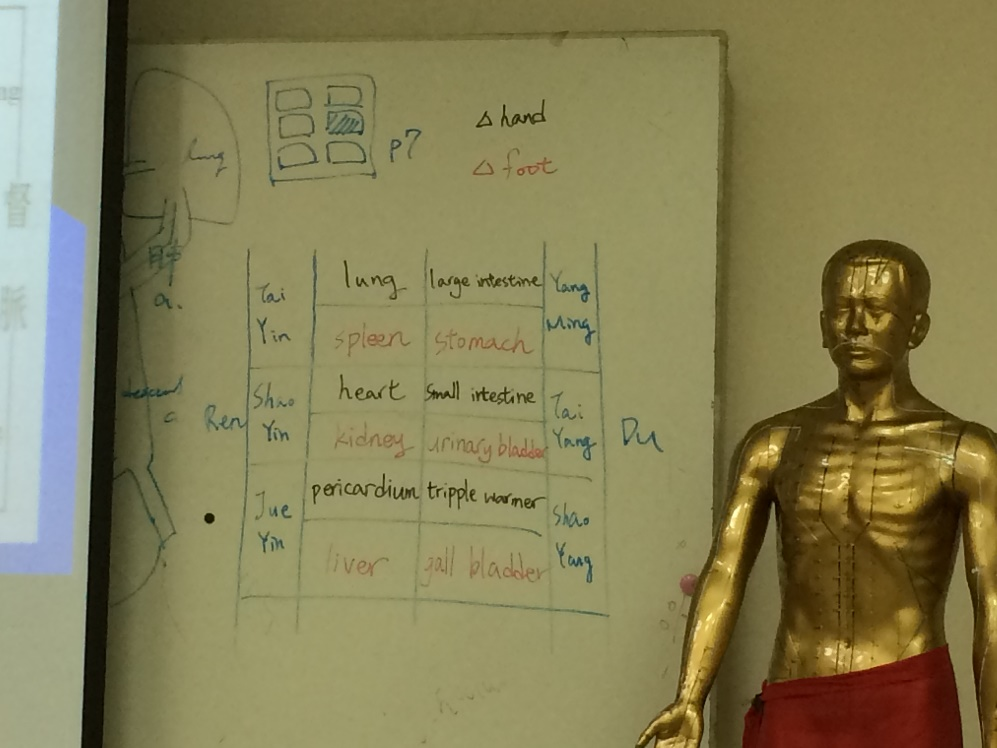 ng
督
脈
lung
肺
a.
c
p7
△ hand
△ foot
Ren
Du
Tai Yin
lung
large intestine
Yang Ming
spleen
stomach
Shao Yin
heart
Small intestine
Tai Yang
kidney
urinary bladder
Jue Yin
pericardium
tripple warmer
Shao Yang
liver
gall bladder